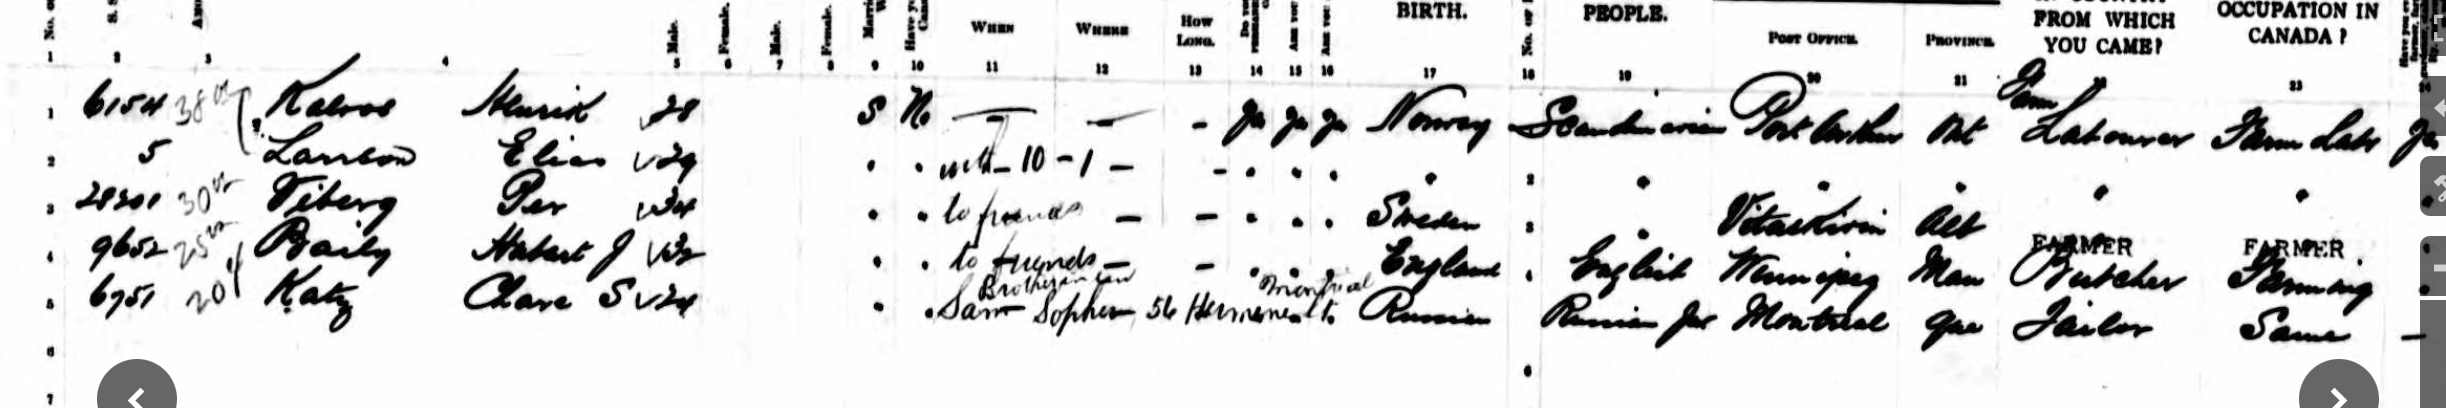 No. S. S.
Male. Female. Male. Female. WHEN WHERE HOW LONG. BIRTH. No. PEOPLE. POST OFFICE. PROVINCE. FROM WHICH YOU CAME? OCCUPATION IN CANADA?
1 2 3 4 5 6 7 8 9 10 11 12 13 14 15 16 17 18 19 20 21 22 23 24
1 6154 38 Henrik 28 S No — — - Norway Scandinavian Port Arthur Ont Farm Labourer Farm Labr
2 5 Larsson Elias 29 " " 10 - 1 — - " " " " 2 " " " " "
3 28201 30 Viberg Per 34 " " to friends — - " " " Sweden 3 " Alt " "
4 9652 25 Baily J 32 " " to friends — - " " " England 4 English Winnipeg Man FARMER Butcher FARMER Farming
Brother in law Montreal
5 6751 20 Katz S 24 " " Sam 56 Russian Russian Jew Montreal Que Tailor Same —
6 6
7